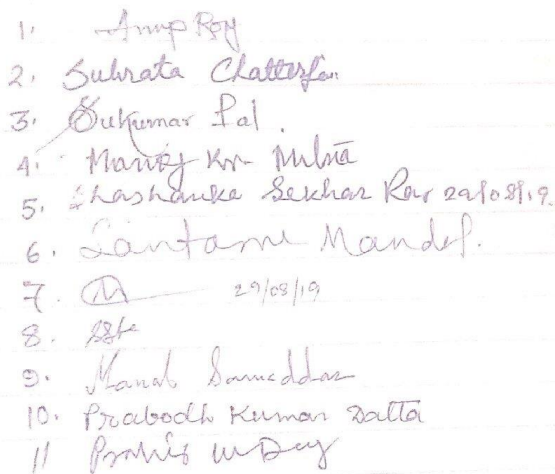 1. Anup Roy
2. Subrata Chatterjee
3. Sukumar Pal.
4. Manoj Kr. Mitra
5. Shashanka Sekhar Kar 29/08/19.
6. Santanu Mandal.
7. 29/08/19
8.
9. Manab Samaddar
10. Prabodh Kumar Datta
11 Dey